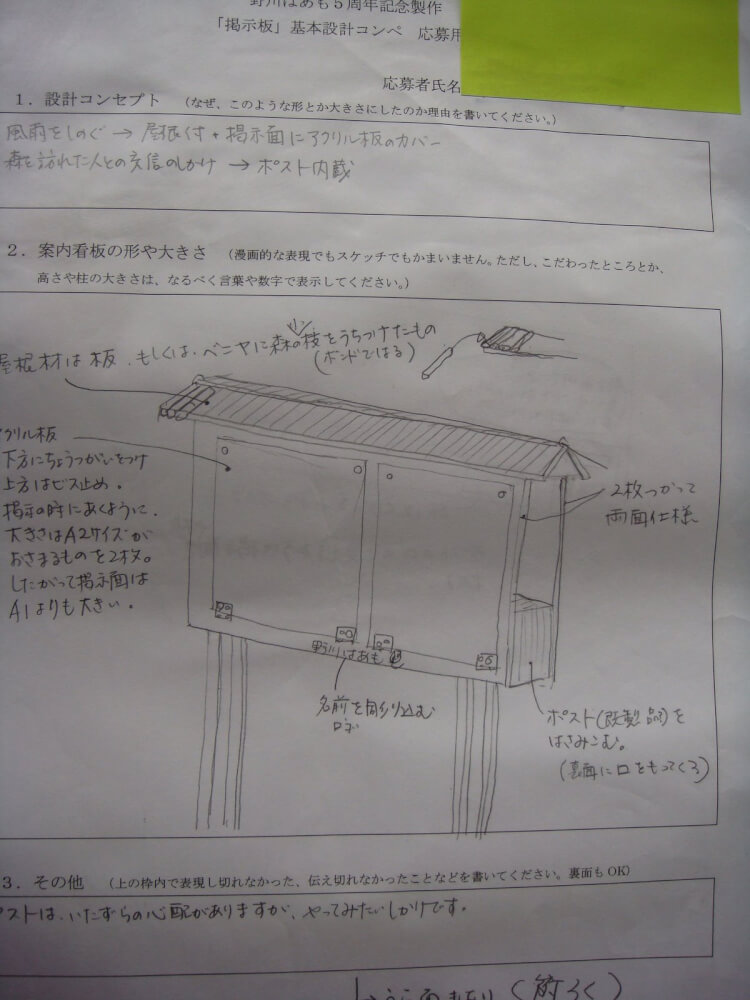 野川はあも5周年記念製作
「掲示板」基本設計コンペ　応募用
応募者氏名
1．設計コンセプト　（なぜ、このような形とか大きさにしたのか理由を書いてください。）
風雨をしのぐ → 屋根付 + 掲示面にアクリル板のカバー
森を訪れた人との交信のしかけ → ポスト内蔵
2．案内看板の形や大きさ　（漫画的な表現でもスケッチでもかまいません。ただし、こだわったところとか、
高さや柱の大きさは、なるべく言葉や数字で表示してください。）
屋根材は板、もしくは、ベニヤに森の枝をうちつけたもの
(ボンドではる)
アクリル板
下方にちょうつがいをつけ
上方はビス止め。
掲示の時にあくように。
大きさはA2サイズが
おさまるものを2枚。
したがって掲示面は
A1よりも大きい。
2枚つかって
両面仕様
野川はあも
名前を彫り込む
ロゴ
ポスト(既製品)を
はさみこむ。
(裏面に口をもってくる)
3．その他　（上の枠内で表現し切れなかった、伝え切れなかったことなどを書いてください。裏面もOK）
ポストは、いたずらの心配がありますが、やってみたいしかけです。